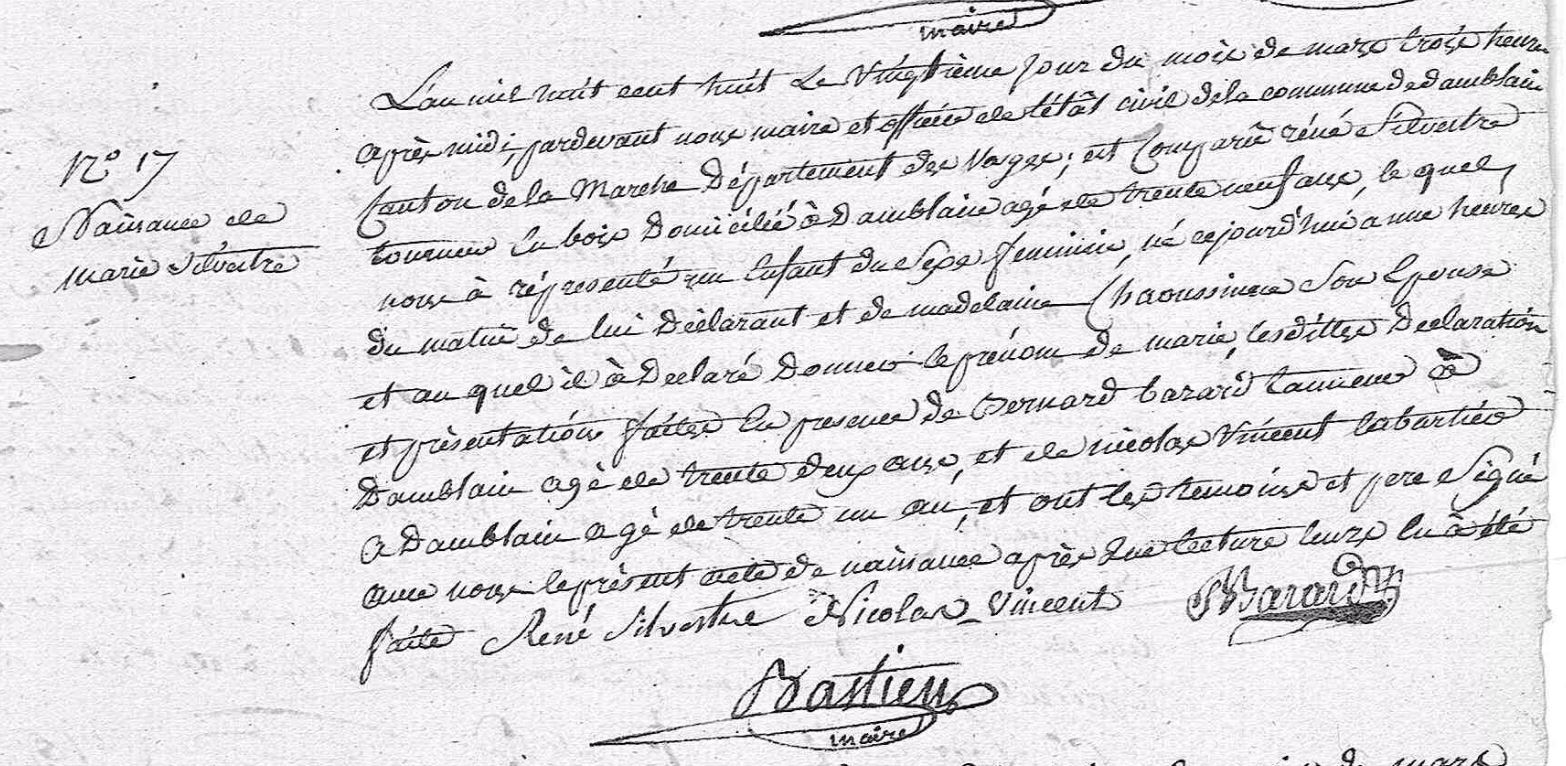 maire
L'an mil huit cent huit le vingtième jour du mois de mars trois heures
après midi, pardevant nous maire et officier de l'état civil de la commune de damblain
N.° 17
Canton de la Marche Département des Vosges; est Comparû réné Silvestre
Naissance de
tourneur en bois Domicilié à Damblain agé de trente neuf ans, le quel,
marie Silvestre
nous à réprésenté un Enfant du Sexe feminin, né cejourd'hui a une heures
du matin de lui Déclarant et de madelaine Son Epouse
et au quel il à Declaré Donner le prénom de marie, lesdittes Declaration
et présentation faites En presence de Bernard barard tanneur à
Damblain agé de trente deux ans, et de nicolas Vincent
a Damblain agé de trente un an, et ont les temoins et pere Signé
avec nous le présent acte de naissance après que lecture leurs En à été
faite René Silvestre Nicolas Vincent BBarard
Bastien
maire
mars